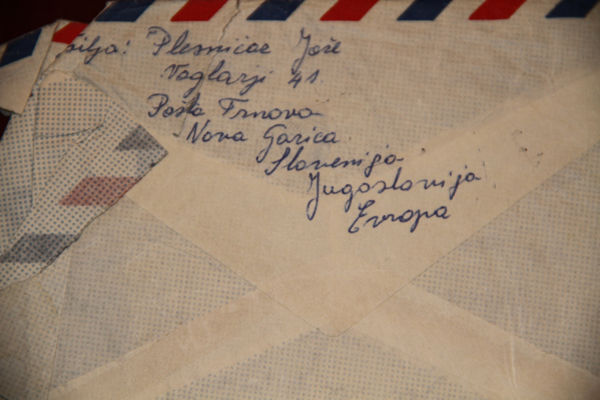 šilja: Plesničar Jože
Voglarji 41
Pošta Trnovo
Nova Gorica
Slovenija
Jugoslavija
Evropa